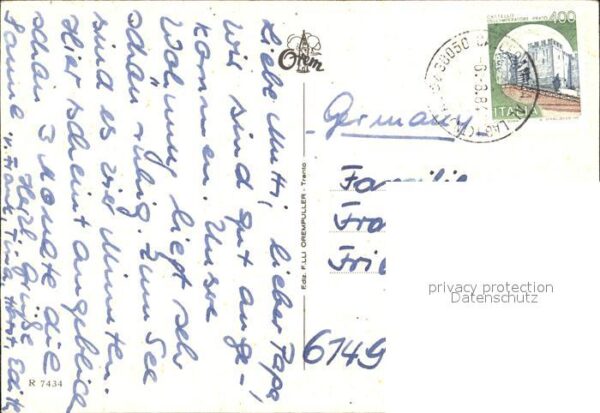 Liebe Mutti, lieber Papa
wir sind gut ange-
kommen. Unsere
Wohnung liegt sehr
schön ruhig. Zum See
sind es vier Minuten.
Hier scheint angeblich
schon 3 Monate die
Sonne
Herzl. Grüße
Frank, Tina, Horst, Edith
R 7434
Orem
Ediz. F.LLI OREMPULLER - Trento
CASTELLO
DELL'IMPERATORE - PRATO
400
ITALIA
38050
Germany
Familie
Fra
Frie
6149
privacy protection
Datenschutz